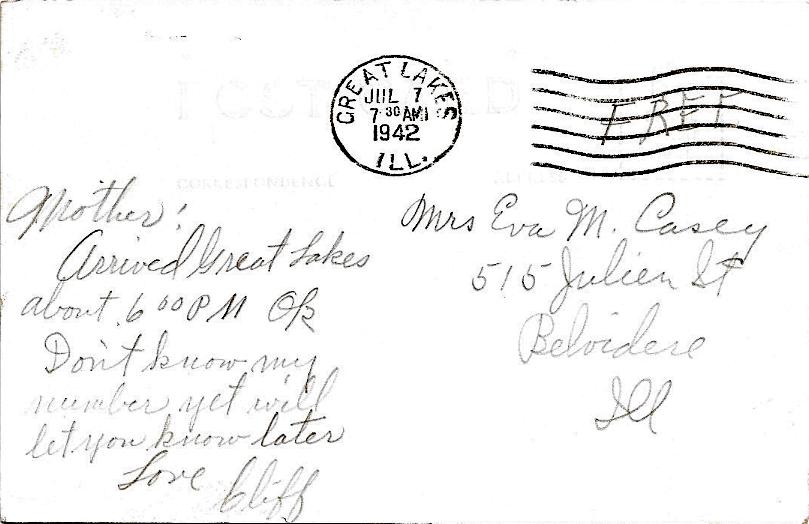 GREAT LAKES
JUL 7
7 30 AM
1942
ILL.
FREE
CORRESPONDENCE
Mother:
Arrived Great Lakes
about 6 00 PM Ok
Don't know my
number yet will
let you know later
Love
Cliff
Mrs Eva M. Casey
515 Julien St
Belvidere
Ill